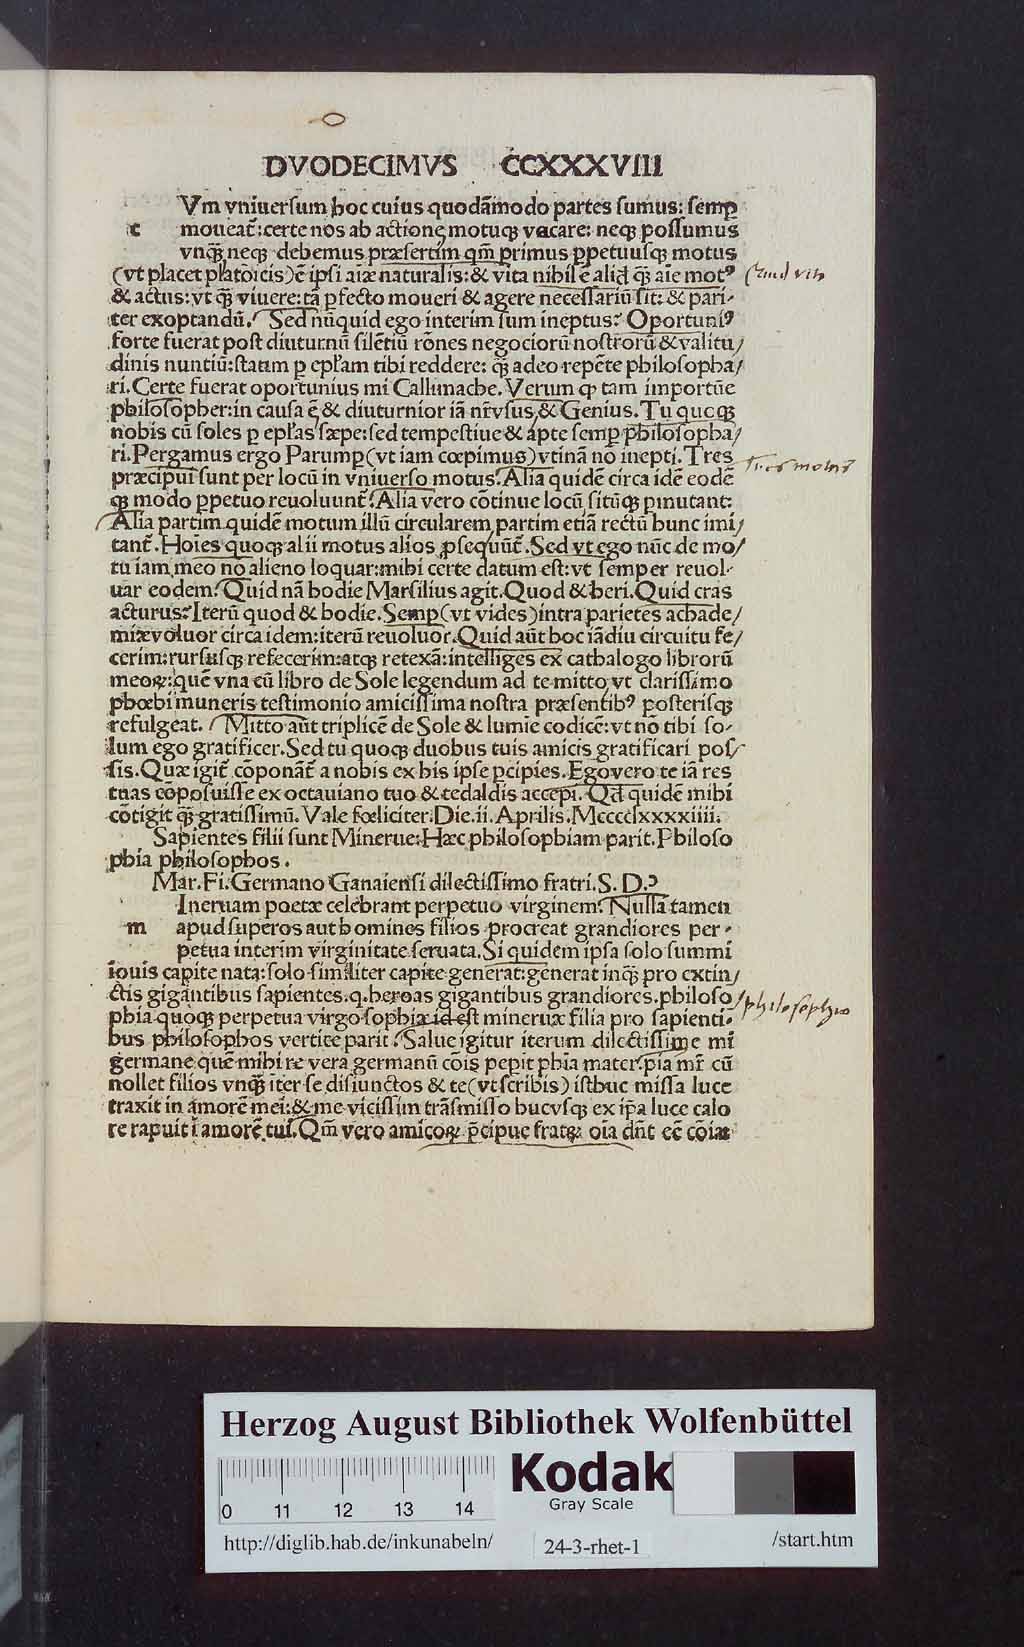 DVODECIMVS CCXXXVIII
Vm vniuersum hoc cuius quodāmodo partes sumus: semꝑ
c moueat᷑: certe nos ab actione motuqꝫ vacare: neqꝫ possumus
vnqꝫ̄ neqꝫ debemus præsertim qm̄ primus ꝑpetuusqꝫ motus
(vt placet platoīcis) ē ipsi aiæ naturalis: & vita nihil ē aliḋ qꝫ̄ aīe motꝰ
& actus: vt qꝫ̄ viuere: tā ꝓfecto moueri & agere necessariū sit: & pari-
ter exoptandū. Sed nūquid ego interim sum ineptus? Oportuniꝰ
forte fuerat post diuturnū silētiū rōnes negociorū nostrorū & valitu/
dinis nuntiū: statim ꝑ epłam tibi reddere: qꝫ̄ adeo repēte philosopha/
ri. Certe fuerat oportunius mi Callimache. Verum ꝙ tam importūe
philosopher: in causa ē & diuturnior iā nr̄ vsus, & Genius. Tu quoqꝫ
nobis cū soles ꝑ epłas sæpe: sed tempestiue & apte semꝑ philosopha/
ri. Pergamus ergo Parumꝑ (vt iam cœpimus) vtinā nō inepti. Tres
præcipui sunt per locū in vniuerso motus. Alia quidē circa idē eodē
qꝫ modo ꝑpetuo reuoluunt᷑. Alia vero cōtinue locū, sitūqꝫ ꝑmutant:
Alia partim quidē motum illū circularem, partim etiā rectū hunc imi/
tant᷑. Hoīes quoqꝫ alii motus alios ꝓsequūt᷑. Sed vt ego nūc de mo/
tu iam meo nō alieno loquar: mihi certe datum est: vt semper reuol-
uar eodem. Quid nā hodie Marsilius agit. Quod & heri. Quid cras
acturus? Iterū quod & hodie. Semꝑ (vt vides) intra parietes achade/
miæ voluor circa idem: iterū reuoluor. Quid aūt hoc iādiu circuitu fe/
cerim: rursusqꝫ refecerim: atqꝫ retexā: intelliges ex cathalogo librorū
meoꝝ: quē vna cū libro de Sole legendum ad te mitto, vt clarissimo
phœbi muneris testimonio amicissima nostra præsentibꝰ posterisqꝫ
refulgeat. Mitto aūt triplicē de Sole & lumīe codicē: vt nō tibi so-
lum ego gratificer. Sed tu quoqꝫ duobus tuis amicis gratificari pos-
sis. Quæ igit᷑ cōponāt᷑ a nobis ex his ipse ꝑcipies. Ego vero te iā res
tuas cōposuisse ex octauiano tuo & tedaldis accepi. Qḋ quidē mihi
cōtigit qꝫ̄ gratissimū. Vale fœliciter. Die. ii. Aprilis. Mcccclxxxxiiii.
Sapientes filii sunt Minerue: Hæc philosophiam parit. Philoso
phia philosophos.
Mar. Fi. Germano Ganaiensi dilectissimo fratri. S. D.
Ineruam poetæ celebrant perpetuo virginem. Nulla tamen
m apud superos aut homines filios procreat grandiores per-
petua interim virginitate seruata. Si quidem ipsa solo summi
iouis capite nata: solo similiter capite generat: generat inqꝫ̄ pro extin/
ctis gigantibus sapientes. q. heroas gigantibus grandiores. philoso/
phia quoqꝫ perpetua virgo sophiæ id est mineruæ filia pro sapienti-
bus philosophos vertice parit. Salue igitur iterum dilectissime mi
germane quē mihi re vera germanū cōis peperit phīa mater. pia mr̄ cū
nollet filios vnqꝫ̄ iter se disiunctos & te (vt scribis) isthuc missa luce
traxit in amorē mei: & me vicissim trāsmisso hucvsqꝫ ex ip̄a luce calo
re rapuit ī amorē tui. Qm̄ vero amicoꝝ p̄cipue fratꝝ oīa dn̄t eē cōia:
Quid vita
Tres motus
philosophia
Herzog August Bibliothek Wolfenbüttel
0 11 12 13 14
Kodak
Gray Scale
http://diglib.hab.de/inkunabeln/
24-3-rhet-1
/start.htm